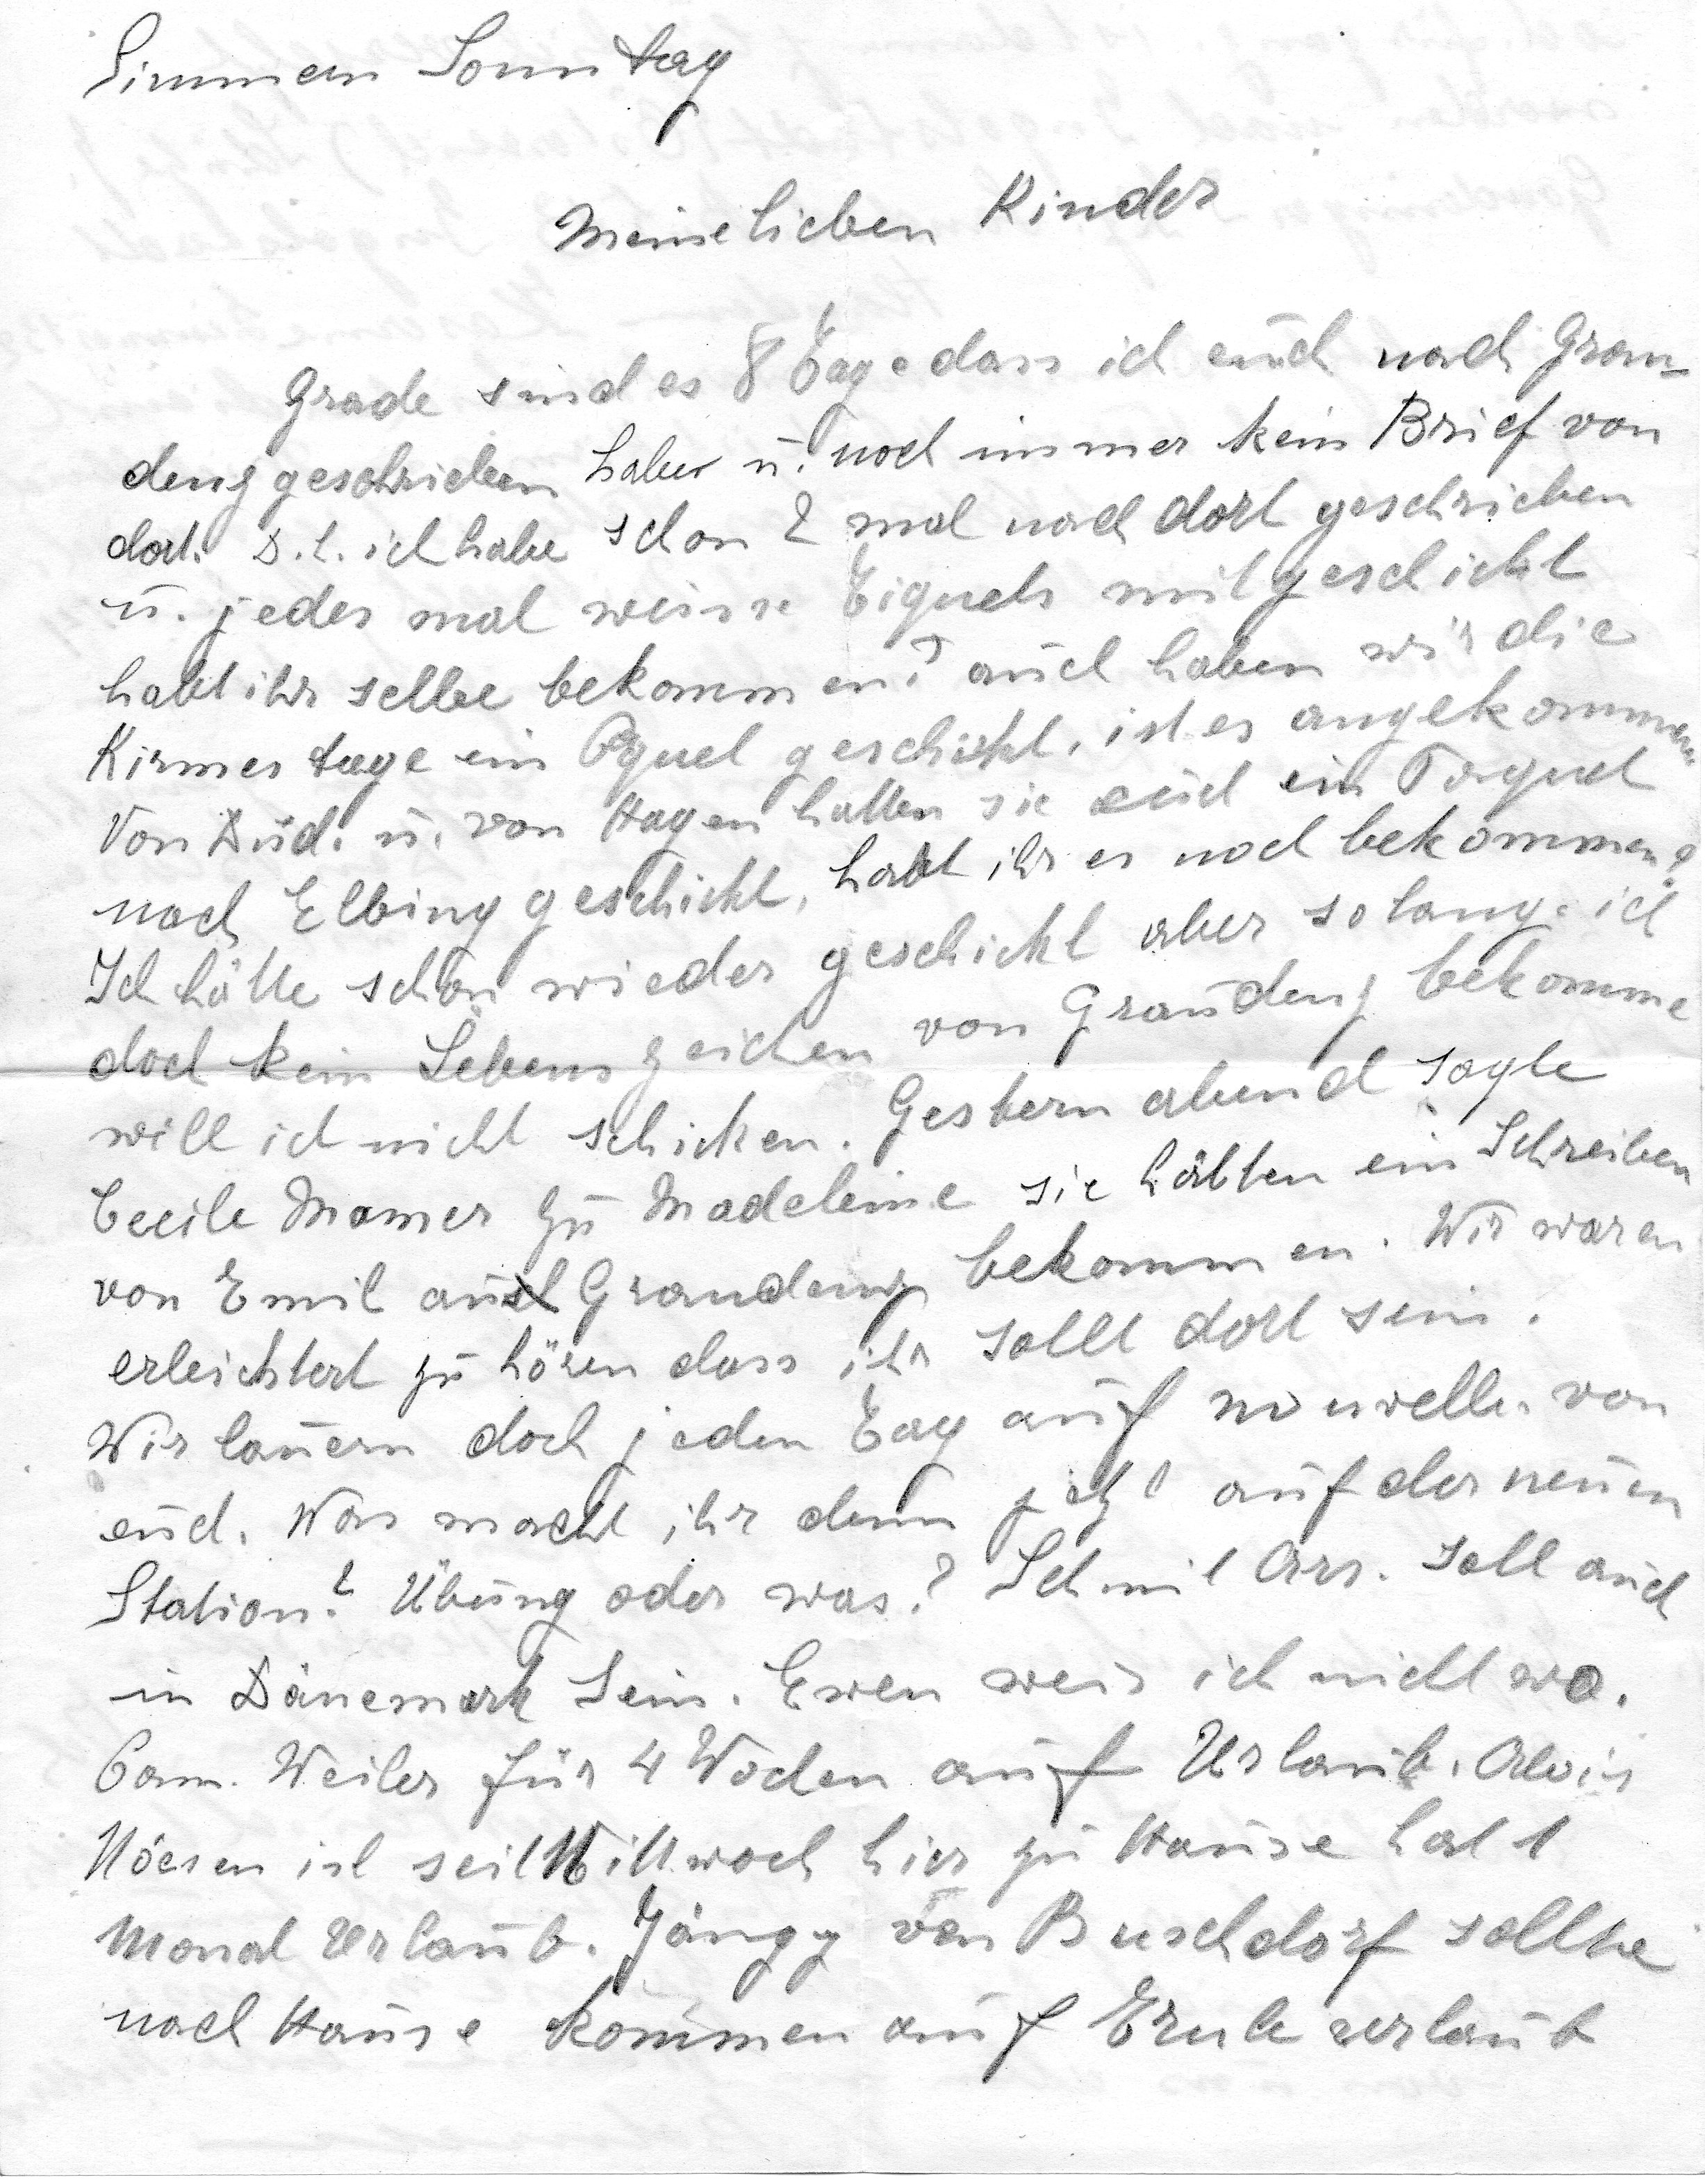 Simmern Sonntag
Meine lieben Kinder
Grade sind es 8 Tage dass ich euch nach Grau-
denz geschrieben habe u. noch immer kein Brief von
dort. D.h. ich habe schon 2 mal nach dort geschrieben
u. jedes mal weisse Tiquets mitgeschickt
habt ihr selbe bekommen? auch haben wir die
Kirmes tage ein Pquet geschickt, ist es angekommen.
Von Düd. u. von Hagen hatten sie euch ein Paquet
nach Elbing geschickt, habt ihr es noch bekommen?
Ich hätte schon wieder geschickt aber solange ich
doch kein Lebenszeichen von Graudenz bekomme
will ich nicht schicken. Gestern abend sagte
Cecile Mamer zu Madeleine sie hätten ein Schreiben
von Emil aus Graudenz bekommen. Wir waren
erleichtert zu hören dass ihr sollt dort sein.
Wir lauern doch jeden Tag auf nouvelle von
euch. Was macht ihr denn jetzt auf der neuen
Station? Übung oder was? Schmit Ars. soll auch
in Dänemark sein. Ewen weis ich nicht wo.
Cam. Weiler für 4 Wochen auf Urlaub. Alois
Nöesen ist seit Mittwoch hier zu Hause hat 1
Monat Urlaub. Jängy von Buschdorf sollte
nach Hause kommen auf Ernte urlaub